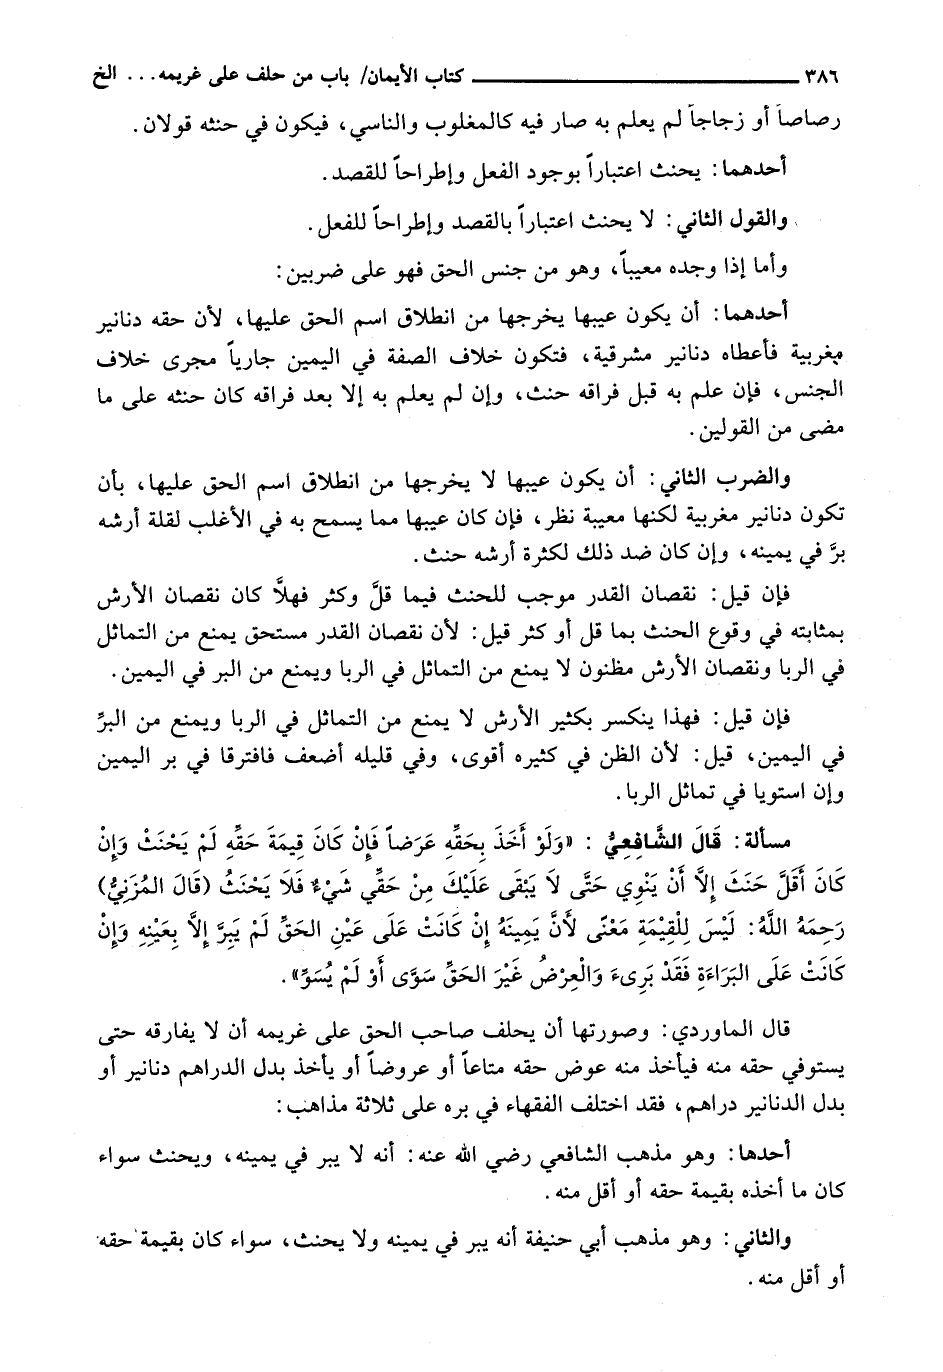 ٣٨٦ ــــــــــــــــــــــــــــ كتاب الأيمان/ باب من حلف على غريمه... الخ
رصاصاً أو زجاجاً لم يعلم به صار فيه كالمغلوب والناسي، فيكون في حنثه قولان.
أحدهما: يحنث اعتباراً بوجود الفعل وإطراحاً للقصد.
والقول الثاني: لا يحنث اعتباراً بالقصد وإطراحاً للفعل.
وأما إذا وجده معيباً، وهو من جنس الحق فهو على ضربين:
أحدهما: أن يكون عيبها يخرجها من انطلاق اسم الحق عليها، لأن حقه دنانير
مغربية فأعطاه دنانير مشرقية، فتكون خلاف الصفة في اليمين جارياً مجرى خلاف
الجنس، فإن علم به قبل فراقه حنث، وإن لم يعلم به إلا بعد فراقه كان حنثه على ما
مضى من القولين.
والضرب الثاني: أن يكون عيبها لا يخرجها من انطلاق اسم الحق عليها، بأن
تكون دنانير مغربية لكنها معيبة نظر، فإن كان عيبها مما يسمح به في الأغلب لقلة أرشه
برَّ في يمينه، وإن كان ضد ذلك لكثرة أرشه حنث.
فإن قيل: نقصان القدر موجب للحنث فيما قلَّ وكثر فهلاَّ كان نقصان الأرش
بمثابته في وقوع الحنث بما قل أو كثر قيل: لأن نقصان القدر مستحق يمنع من التماثل
في الربا ونقصان الأرش مظنون لا يمنع من التماثل في الربا ويمنع من البر في اليمين.
فإن قيل: فهذا ينكسر بكثير الأرش لا يمنع من التماثل في الربا ويمنع من البرِّ
في اليمين، قيل: لأن الظن في كثيره أقوى، وفي قليله أضعف فافترقا في بر اليمين
وإن استويا في تماثل الربا.
مسألة: قَالَ الشَّافِعِيُّ : «وَلَوْ أَخَذَ بِحَقِّهِ عَرَضاً فَإِنْ كَانَ قِيمَةَ حَقِّهِ لَمْ يَحْنَثْ وَإِنْ
كَانَ أَقَلَّ حَنَثَ إِلاَّ أَنْ يَنْوِي حَتَّى لاَ يَبْقَى عَلَيْكَ مِنْ حَقِّي شَيْءٌ فَلاَ يَحْنَثُ (قَالَ المُزَنِيُّ)
رَحِمَهُ اللَّهُ: لَيْسَ لِلْقِيْمَةِ مَعْنًى لأَنَّ يَمِينَهُ إِنْ كَانَتْ عَلَى عَيْنِ الحَقِّ لَمْ يَبَرَّ إِلاَّ بِعَيْنِهِ وَإِنْ
كَانَتْ عَلَى البَرَاءَةِ فَقَدْ بَرِىءَ وَالْعِرْضُ غَيْرَ الحَقِّ سَوَّى أَوْ لَمْ يُسَوِّ».
قال الماوردي: وصورتها أن يحلف صاحب الحق على غريمه أن لا يفارقه حتى
يستوفي حقه منه فيأخذ منه عوض حقه متاعاً أو عروضاً أو يأخذ بدل الدراهم دنانير أو
بدل الدنانير دراهم، فقد اختلف الفقهاء في بره على ثلاثة مذاهب:
أحدها: وهو مذهب الشافعي رضي الله عنه: أنه لا يبر في يمينه، ويحنث سواء
كان ما أخذه بقيمة حقه أو أقل منه.
والثاني: وهو مذهب أبي حنيفة أنه يبر في يمينه ولا يحنث، سواء كان بقيمة حقه
أو أقل منه.